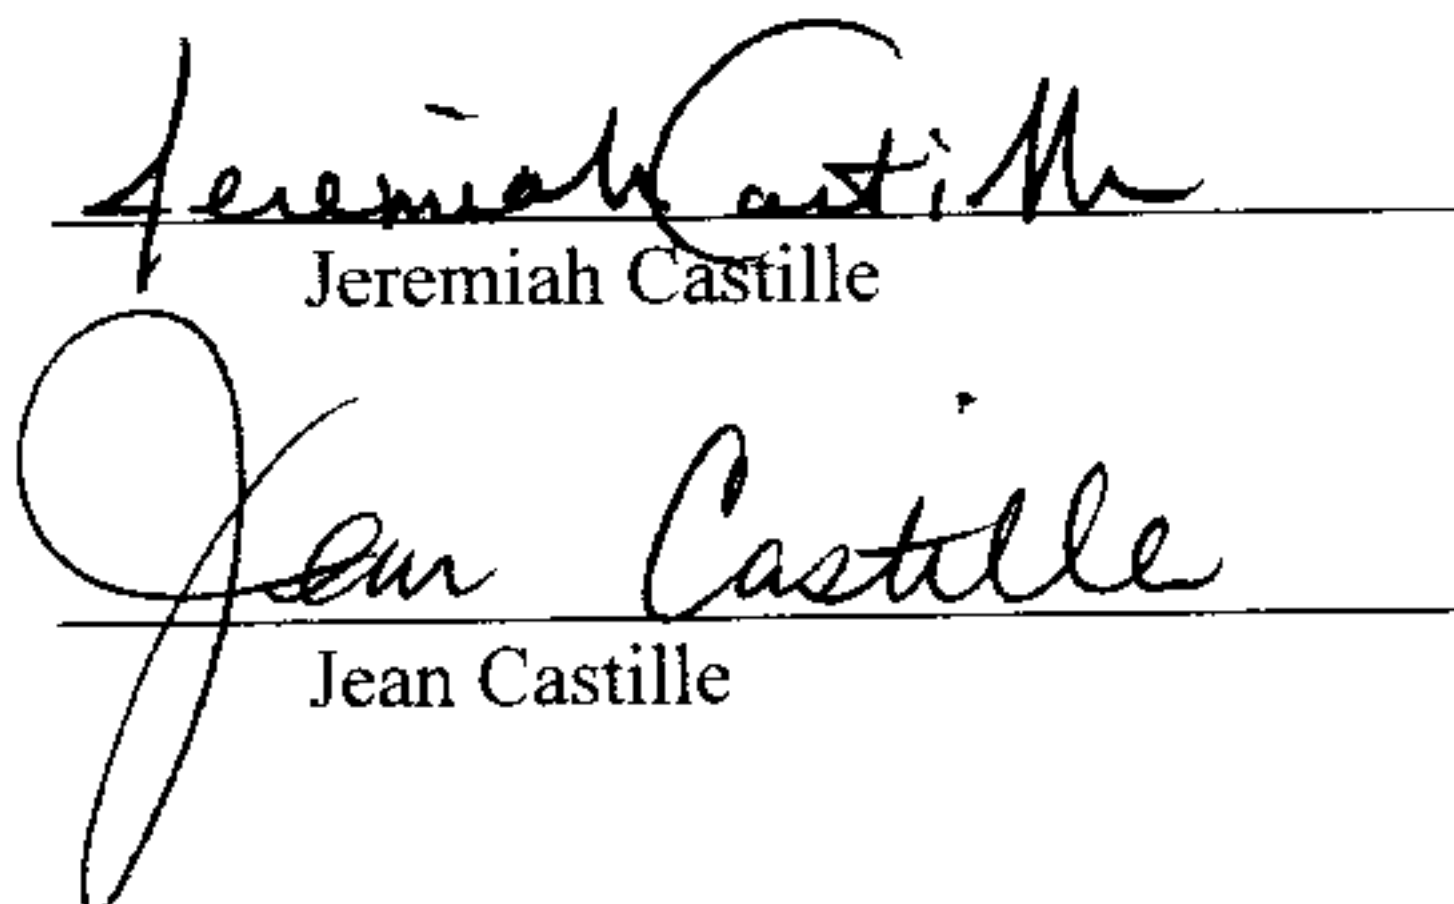 Jeremiah Castille
Jeremiah Castille
Jean Castille
Jean Castille